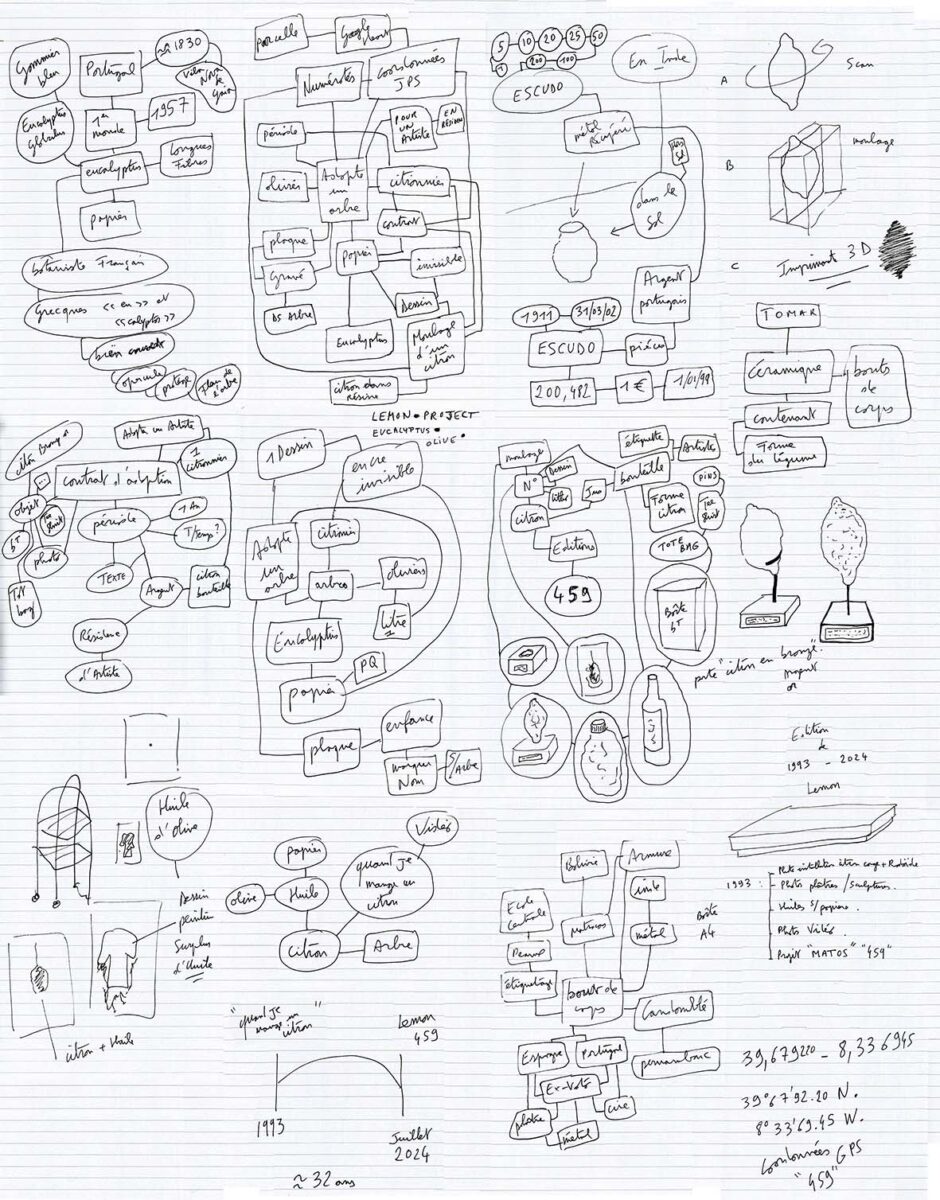 Gommier
bleu
Portugal
≈ 1830
Vila
Nova de
Gaia
Eucalyptus
globulus
1er
monde
1957
eucalyptus
Longues
Fibres
papier
botaniste Français
Grecques « eu » et
« calyptos »
bien couvert
opercule
protège
Fleur de
l'arbre
parcelle
Google
Numérotés
coordonnées
JPS
période
POUR
UN
Artiste
EN
RÉSIDE
olivier
Adopte
un
arbre
citronnier
contrat
plaque
papier
invisible
Gravé
Dessin
DS Arbre
Eucalyptus
Moulage
d'un
citron
citron dans
résine
LEMON • PROJECT
EUCALYPTUS •
OLIVE •
5
10
20
25
50
1
200
100
ESCUDO
En Inde
métal
Récupéré
dans le
Sol
Argent
portugais
1911
31/03/02
ESCUDO
pièces
200,482
1 €
1/01/99
A
Scan
B
moulage
C
Imprimant 3D
TOMAR
Céramique
bouts
de
corps
contenant
Forme
du légume
citron bronze
Adopte un Artiste
1
citronnier
contrat d'adoption
objet
Tee
Shirt
période
1 An
T/temps?
BT
photo
TEXTE
Tot
bag
Argent
citron
bouteille
Résidence
d'Artiste
1 Dessin
encre
invisible
Adopte
un
arbre
citronier
arbre
oliviers
Litre
1
Eucalyptus
papier
PQ
plaque
enfance
marquer
Nom
S/Arbre
moulage
étiquette
Artiste
N°
Dessin
bouteille
litho
Jus
citron
Forme
citron
pins
Tee
Shirt
Editions
TOTE
BAG
459
Boîte
BT
porte "citron en bronze".
Argent
or
Edition
de
1993 - 2024
Lemon
Huile
d'olive
Dessin
peinture
Surplus
d'Huile
citron + Huile
papier
Vidéo
olive
Huile
quand je
mange un
citron
citron
Arbre
"quand je
mange un
citron"
Lemon
459
1993
Juillet
2024
≈ 32 ans
Bolivie
Armure
Ecole
Centrale
inde
Matrices
métal
étiquetage
bout de
corps
Candomblé
Espagne
Portugal
pernambouc
Ex-Voto
plâtre
cire
métal
Boîte
A4
1993 :
- Photo installation citron coupé + Rodoïde
- Photo plâtres / Sculptures.
- Huiles S/papier.
- Photo Vidéo.
- Projet "MATOS" "459"
39,679220 - 8,336945
39°67'92.20 N.
8°33'69.45 W.
Coordonnées GPS
"459"